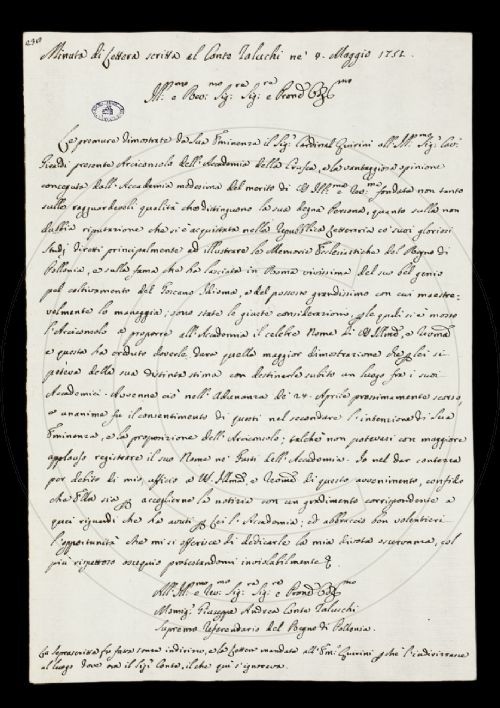 230
Minuta di Lettera scritta al Conte Zaluschi ne' 8. Maggio 1751.
Ill.mo e Rev.mo Sig.re Sig.re e Pron
Le premure dimostrate da Sua Eminenza il Sig.r Cardinal Quirini all'Ill.mo Sig.r Cav.r
Giraldi presente Arciconsolo dell'Accademia della Crusca, e la vantaggiosa opinione
conceputa dall'Accademia medesima del merito di V.S. Ill.ma Rev.ma fondata non tanto
sulle ragguardevoli qualità che distinguono la sua degna Persona, quanto sulla non
dubbia riputazione che si è acquistata nella Repubblica Letteraria co' suoi gloriosi
Studj diretti principalmente ad illustrare le Memorie Eclesiastiche del Regno di
Pollonia, e sulla fama che ha lasciata in Roma vivissima del suo bel genio
pel coltivamento del Toscano Idioma, e del possesso grandissimo con cui maestre-
volmente lo maneggia, sono state le giuste considerazioni, p le quali si è mosso
l'Arciconsolo a proporre all'Accademia il celebre Nome di V.S. Illma, e Revma
e questa ha creduto doverle dare quella maggior dimostrazione che p lei si
poteva della sua distinta stima con destinarle subito un luogo fra i suoi
Accademici. Avvenne ciò nell'Adunanza de' 24. Aprile prossimamente scorso,
e unanime fu il consentimento di questi nel secondare l'intenzione di Sua
Eminenza, e la proposizione dell'Arciconsolo; talchè non potevasi con maggiore
applauso registrare il suo Nome ne' Fasti dell'Accademia. Io nel dar contezza
per debito di mio ufficio a V.S. Illma, e Revma di questo avvenimento, confido
che Ella sia p accoglierne la notizia con un gradimento corrispondente a
quei riguardi che ha avuti p Lei l'Accademia; ed abbraccio ben volentieri
l'opportunità che mi si offerisce di dedicarle la mia divota osservanza, col
più rispettoso ossequio protestandomi inviolabilmente
All'Ill.mo e Rev.mo Sig.re Sig.re e Pron
Monsig.r Giuseppe Andrea Conte Zaluschi
Supremo Referendario del Regno di Pollonia.
La soprascritta fu fatta senza indirizzo, e la Lettera mandata all'Em.o Quirini p che l'indirizzasse
al luogo dove era il Sig.r Conte, il che qui s'ignorava.